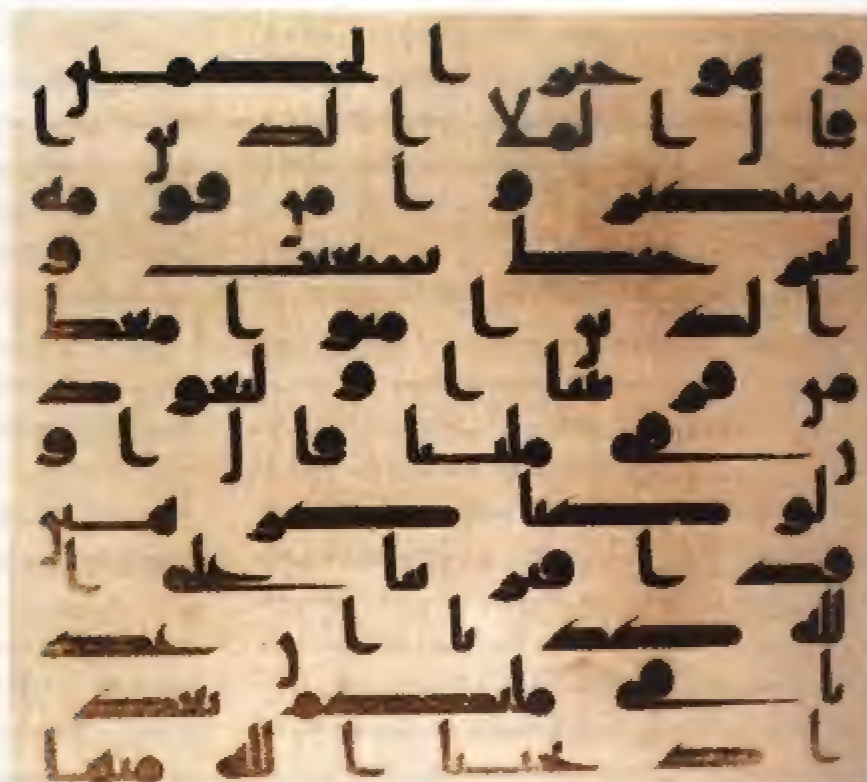 وهو خير الحكمين
قال الملا الذين ا
ستكبروا من قومه
لنخرجنك يشعيب و
الذين امنوا معك
من قريتنا او لتعود
ن في ملتنا قال او
لو كنا كرهين
قد افترينا على ا
لله كذبا ان عد
نا في ملتكم بعد
اذ نجينا الله منها